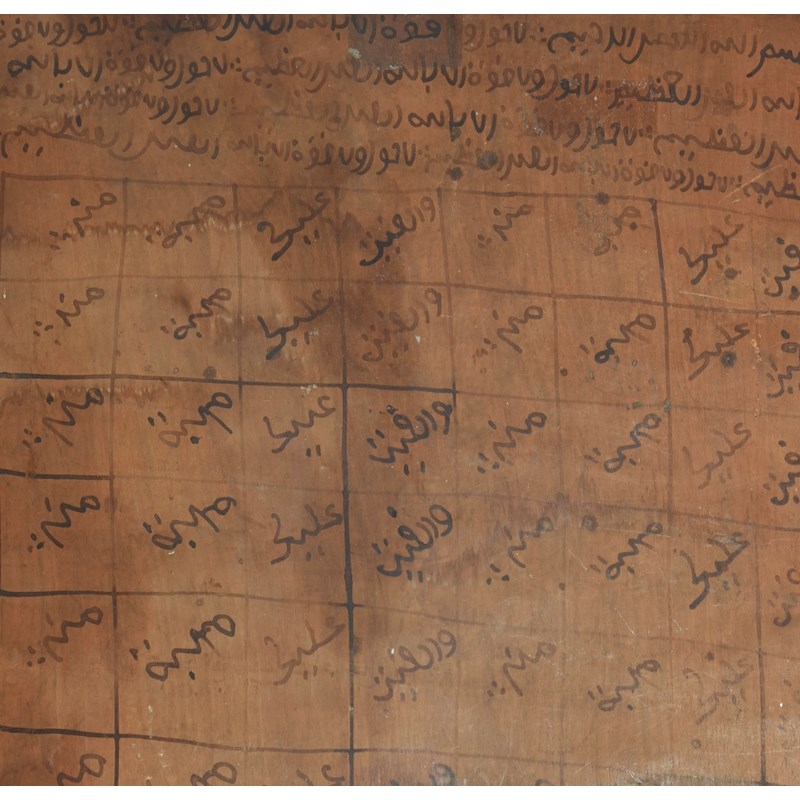 بسم الله الرحمن الرحيم لا حول ولا قوة الا بالله العلي العظيم لا حول ولا قوة
بالله العلي العظيم لا حول ولا قوة الا بالله العلي العظيم لا حول ولا قوة الا بالله
العلي العظيم لا حول ولا قوة الا بالله العلي العظيم لا حول ولا قوة
العظيم لا حول ولا قوة الا بالله العلي العظيم لا حول ولا قوة الا بالله العلي العظيم
عليك محبة مني والقيت عليك محبة مني
عليك محبة مني والقيت عليك محبة مني
عليك محبة مني والقيت عليك محبة مني
عليك محبة مني والقيت عليك محبة مني
عليك محبة مني والقيت عليك محبة مني